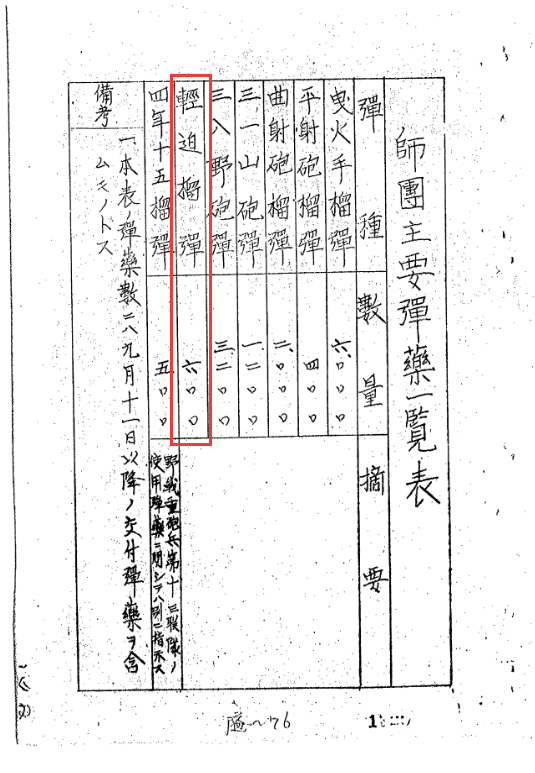 師團主要彈藥一覧表
彈種 數量 摘要
曳火手榴彈 六、〇〇〇
平射砲榴彈 四〇〇
曲射砲榴彈 二、〇〇〇
三一山砲彈 一二〇〇
三八野砲彈 三、二〇〇
輕迫榴彈 六〇〇
四年十五榴彈 五〇〇
野戰重砲兵第十三聯隊ノ
使用彈藥ニ関シテハ別ニ指示ス
備考
一、本表ノ彈藥數ニハ九月十一日以降ノ交付彈藥ヲ含
ムモノトス